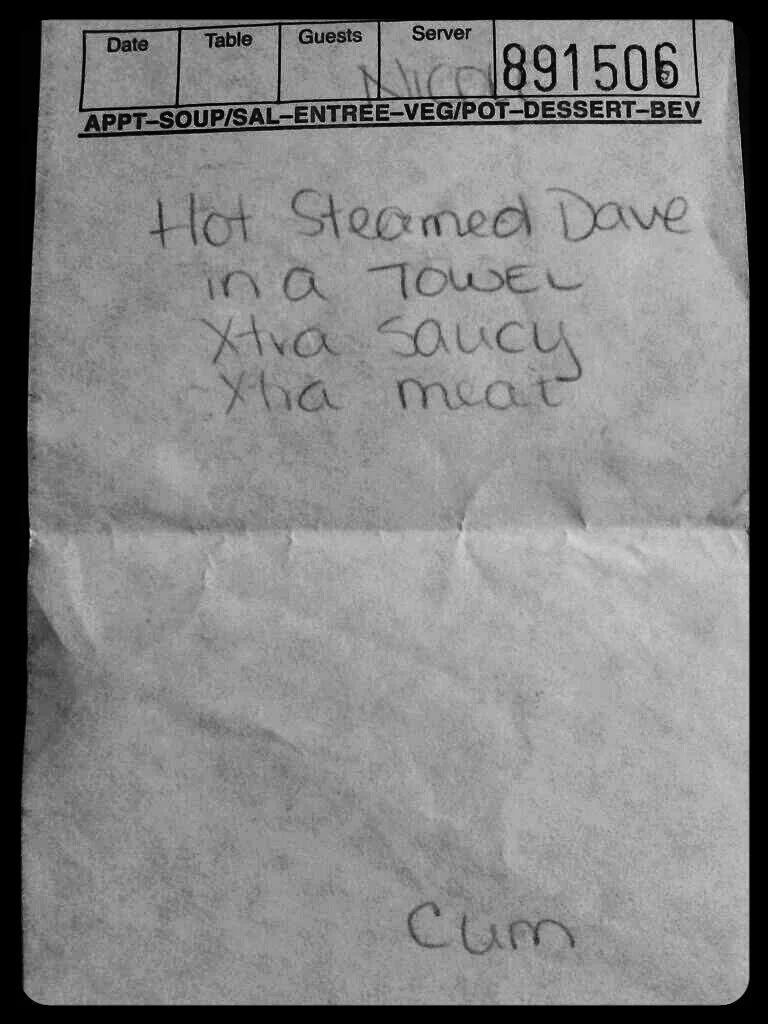 Date Table Guests Server 891506
APPT–SOUP/SAL–ENTREE–VEG/POT–DESSERT–BEV
Hot Steamed Dave
in a TOWEL
Xtra saucy
Xtra meat
Cum